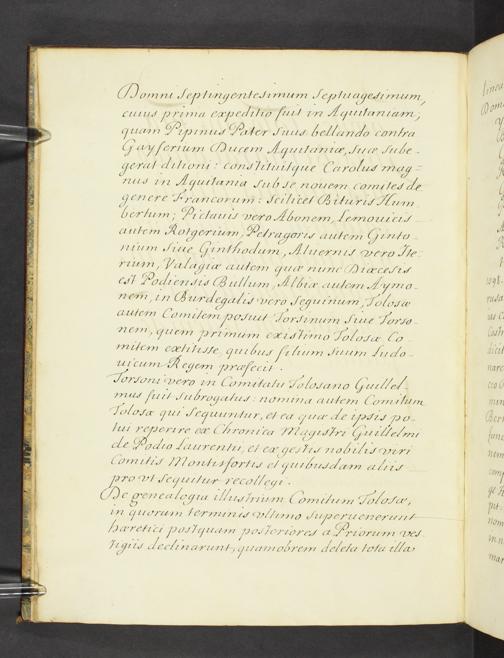 Domni Septingentesimum Septuagesimum,
cuius prima expeditio fuit in Aquitaniam,
quam Pipinus Pater Suus bellando contra
Gayferium Ducem Aquitaniæ, Suæ Sube-
gerat ditioni: constituitque Carolus mag=
nus in Aquitania Sub se nouem comites de
genere Francorum: Scilicet Bituris Hum
bertum; Pictauis vero Abonem, Lemouicis
autem Rotgerium, Petragoris autem Ginto-
nium Siue Ginthodum, Aluernis vero Ite-
rium, Valagiæ autem quæ nunc Diœcesis
est Podiensis Bullum, Albiæ autem Aymo-
nem, in Burdegalis vero Seguinum, Tolosæ
autem Comitem posuit Torsinum Siue Torso-
nem, quem primum existimo Tolosæ Co-
mitem extitisse, quibus filium Suum Ludo-
uicum Regem præfecit.
Torsoni vero in Comitatu Tolosano Guillel-
mus fuit Subrogatus: nomina autem Comitum
Tolosæ qui Sequuntur, et ea quæ de ipsis po-
tui reperire ex Chronica Magistri Guillelmi
de Podio Laurentii, et ex gestis nobilis viri
Comitis Montisfortis et quibusdam aliis
pro vt Sequitur recollegi.
De genealogia illustrium Comitum Tolosæ,
in quorum terminis vltimo Superuenerunt
hæretici postquam posteriores a Priorum ves-
tigiis declinarunt, quamobrem deleta tota illa